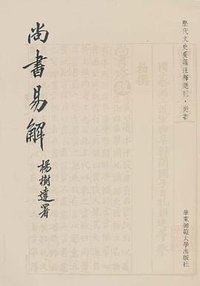 歷代文史要籍注釋選刊·尚書
尚書易解
楊樹達署
華東師範大學出版社